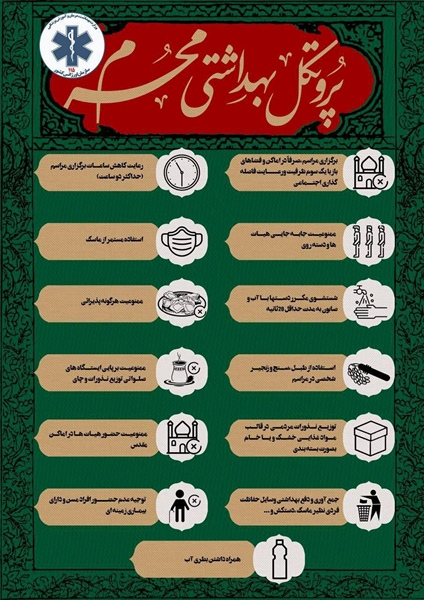 پروتکل بهداشتی محرم
۱۱۵
سازمان اورژانس کشور
برگزاری مراسم، صرفاً در اماکن و فضاهای
باز با یک سوم ظرفیت و رعایت فاصله
گذاری اجتماعی
رعایت کاهش ساعات برگزاری مراسم
(حداکثر دو ساعت)
ممنوعیت جابه جایی هیات
ها و دسته روی
استفاده مستمر از ماسک
شستشوی مکرر دستها با آب و
صابون به مدت حداقل 20 ثانیه
ممنوعیت هرگونه پذیرائی
استفاده از طبل، سنج و زنجیر
شخصی در مراسم
ممنوعیت برپایی ایستگاه های
صلواتی توزیع نذورات و چای
توزیع نذورات مردمی در قالب
مواد غذایی خشک و یا خام
بصورت بسته بندی
ممنوعیت حضور هیات ها در اماکن
مقدس
جمع آوری و دفع بهداشتی وسایل حفاظت
فردی نظیر ماسک ،دستکش و ...
توجیه عدم حضور افراد مسن و دارای
بیماری زمینه ای
همراه داشتن بطری آب